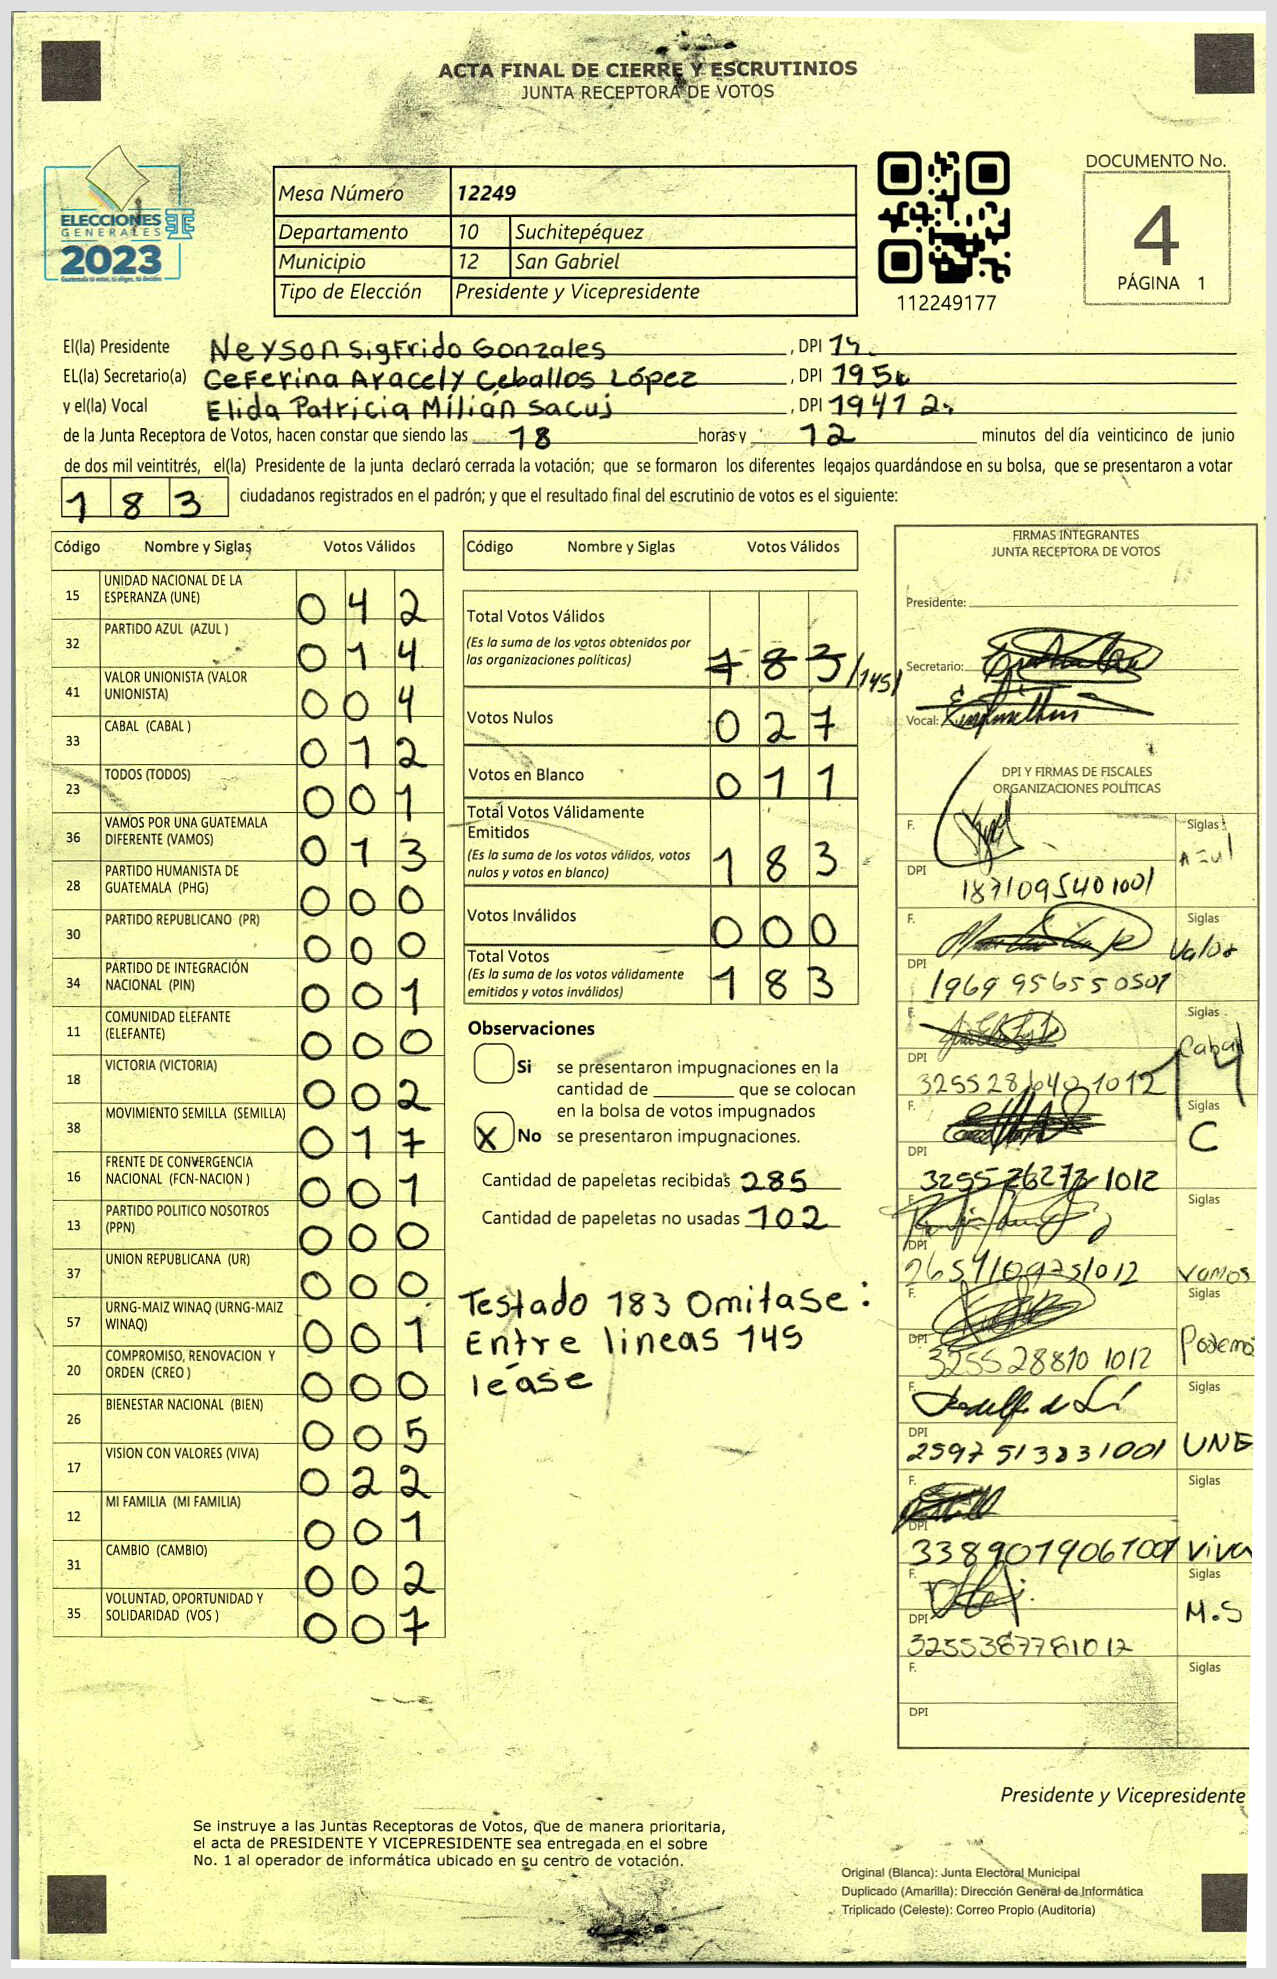 ACTA FINAL DE CIERRE Y ESCRUTINIOS
JUNTA RECEPTORA DE VOTOS
ELECCIONES
GENERALES
2023
Mesa Número 12249
Departamento 10 Suchitepéquez
Municipio 12 San Gabriel
Tipo de Elección Presidente y Vicepresidente
112249177
DOCUMENTO No.
4
PÁGINA 1
El(la) Presidente Neyson Sigfrido Gonzales, DPI
EL(la) Secretario(a) Ceferina Aracely Ceballos López, DPI 195
y el(la) Vocal Elida Patricia Milián Sacuj, DPI 1941 2
de la Junta Receptora de Votos, hacen constar que siendo las 18 horas y 12 minutos del día veinticinco de junio
de dos mil veintitrés, el(la) Presidente de la junta declaró cerrada la votación; que se formaron los diferentes legajos quardándose en su bolsa, que se presentaron a votar
183 ciudadanos registrados en el padrón; y que el resultado final del escrutinio de votos es el siguiente:
Código Nombre y Siglas Votos Válidos
15 UNIDAD NACIONAL DE LA ESPERANZA (UNE) 042
32 PARTIDO AZUL (AZUL ) 014
41 VALOR UNIONISTA (VALOR UNIONISTA) 004
33 CABAL (CABAL ) 012
23 TODOS (TODOS) 001
36 VAMOS POR UNA GUATEMALA DIFERENTE (VAMOS) 013
28 PARTIDO HUMANISTA DE GUATEMALA (PHG) 000
30 PARTIDO REPUBLICANO (PR) 000
34 PARTIDO DE INTEGRACIÓN NACIONAL (PIN) 001
11 COMUNIDAD ELEFANTE (ELEFANTE) 000
18 VICTORIA (VICTORIA) 002
38 MOVIMIENTO SEMILLA (SEMILLA) 017
16 FRENTE DE CONVERGENCIA NACIONAL (FCN-NACION ) 001
13 PARTIDO POLITICO NOSOTROS (PPN) 000
37 UNION REPUBLICANA (UR) 000
57 URNG-MAIZ WINAQ (URNG-MAIZ WINAQ) 001
20 COMPROMISO, RENOVACION Y ORDEN (CREO ) 000
26 BIENESTAR NACIONAL (BIEN) 005
17 VISION CON VALORES (VIVA) 022
12 MI FAMILIA (MI FAMILIA) 001
31 CAMBIO (CAMBIO) 002
35 VOLUNTAD, OPORTUNIDAD Y SOLIDARIDAD (VOS ) 007
Código Nombre y Siglas Votos Válidos
Total Votos Válidos
(Es la suma de los votos obtenidos por
las organizaciones políticas) 183 /145/
Votos Nulos 027
Votos en Blanco 011
Total Votos Válidamente
Emitidos
(Es la suma de los votos válidos, votos
nulos y votos en blanco) 183
Votos Inválidos 000
Total Votos
(Es la suma de los votos válidamente
emitidos y votos inválidos) 183
Observaciones
Si se presentaron impugnaciones en la
cantidad de ________ que se colocan
en la bolsa de votos impugnados
X No se presentaron impugnaciones.
Cantidad de papeletas recibidas 285
Cantidad de papeletas no usadas 102
Testado 183 Omitase:
Entre lineas 145
léase
FIRMAS INTEGRANTES
JUNTA RECEPTORA DE VOTOS
Presidente:
Secretario:
Vocal:
DPI Y FIRMAS DE FISCALES
ORGANIZACIONES POLÍTICAS
F. Siglas
Azul
DPI 1871095401001
F. Siglas
Valor
DPI 1969 95655 0501
F. Siglas
Cabal
DPI
F. Siglas
C
DPI 3255 26273 1012
F. Siglas
Vamos
DPI
F. Siglas
Podemos
DPI 3255 28810 1012
F. Siglas
UNE
DPI 2597 51383 1001
F. Siglas
Viva
DPI 3389079061001
F. Siglas
M.S
DPI 3255387781012
F. Siglas
DPI
Presidente y Vicepresidente
Se instruye a las Juntas Receptoras de Votos, que de manera prioritaria,
el acta de PRESIDENTE Y VICEPRESIDENTE sea entregada en el sobre
No. 1 al operador de informática ubicado en su centro de votación.
Original (Blanca): Junta Electoral Municipal
Duplicado (Amarilla): Dirección General de Informática
Triplicado (Celeste): Correo Propio (Auditoría)